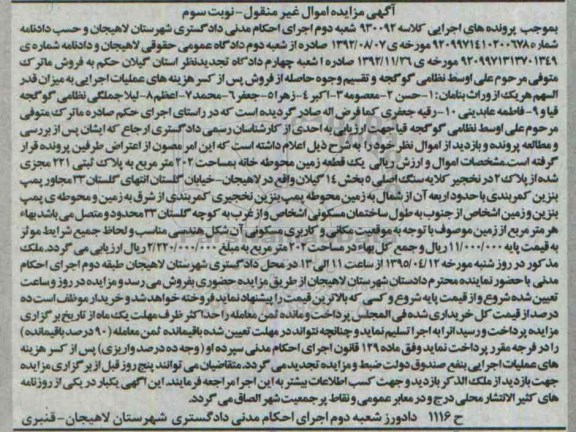 آگهی مزایده اموال غیر منقول - نوبت سوم
بموجب پرونده های اجرایی کلاسه ۹۳۰۰۹۲ شعبه دوم اجرای احکام مدنی دادگستری شهرستان لاهیجان و حسب دادنامه
شماره ۹۲۰۹۹۷۱۴۱۰۲۰۰۶۷۸ مورخه ی ۱۳۹۲/۰۸/۰۷ صادره از شعبه دوم دادگاه عمومی حقوقی لاهیجان و دادنامه شماره ی
۹۲۰۹۹۷۱۳۱۳۷۰۱۳۴۹ مورخه ی ۱۳۹۲/۱۱/۲۶ صادره از شعبه چهارم دادگاه تجدیدنظر استان گیلان حکم به فروش ماترک
متوفی مرحوم علی اوسط نظامی گوگجه و تقسیم وجوه حاصله از فروش پس از کسر هزینه های عملیات اجرایی به میزان قدر
السهم هریک از وراث بنامان: ۱-حسن ۲-معصومه ۳-اکبر ۴-زهرا ۵-جعفر ۶-محمد ۷-اعظم ۸-لیلا جملگی نظامی گوگجه
قیا و ۹-فاطمه عابدینی ۱۰-رقیه جعفری کما فرض اله صادر گردیده است که در راستای اجرای حکم صادره ماترک متوفی
مرحوم علی اوسط نظامی گوگجه قیا جهت ارزیابی به احدی از کارشناسان رسمی دادگستری ارجاع که ایشان پس از بررسی
و مطالعه پرونده و بازدید از اموال نظر خود را به شرح ذیل اعلام داشته است که این امر مصون از اعتراض طرفین پرونده قرار
گرفته است. مشخصات اموال و ارزش ریالی یک قطعه زمین محوطه خانه بمساحت ۲۰۲ متر مربع به پلاک ثبتی ۲۲۱ مجزی
شده از پلاک ۲ در نخجیر کلایه سنگ اصلی ۵ بخش ۱۴ گیلان واقع در لاهیجان - خیابان گلستان انتهای گلستان ۳۳ مجاور پمپ
بنزین کمربندی با حدود اربعه آن از شمال به زمین محوطه پمپ بنزین نخجیری کمربندی از شرق به زمین و محوطه ی پمپ
بنزین و زمین اشخاص از جنوب به طول ساختمان مسکونی اشخاص و از غرب به کوچه گلستان ۳۳ محدود و متصل می باشد بهاء
هر متر مربع از زمین موصوف با توجه به موقعیت مکانی و کاربری مسکونی آن شکل هندسی مناسب و لحاظ جمیع شرایط موثر
به قیمت پایه ۱۱/۰۰۰/۰۰۰ ریال و جمع کل بهاء در مساحت ۲۰۲ متر مربع به مبلغ ۲/۲۲۰/۰۰۰/۰۰۰ ریال ارزیابی می گردد. ملک
مذکور در روز شنبه مورخه ۱۳۹۵/۰۴/۱۲ از ساعت ۱۱ الی ۱۳ در محل دادگستری شهرستان لاهیجان طبقه دوم اجرای احکام
مدنی با حضور نماینده محترم دادستان شهرستان لاهیجان از طریق مزایده حضوری بفروش می رسد و مزایده در روز و ساعت
تعیین شده شروع و از قیمت پایه شروع و کسی که بالاترین قیمت را پیشنهاد نماید فروخته خواهد شد و خریدار موظف است ده
درصد از قیمت کل خریداری شده فی المجلس پرداخت و مانده ثمن معامله را حداکثر ظرف مهلت یک ماه از تاریخ برگزاری
مزایده پرداخت و رسید آنرا به اجرا تسلیم نماید و چنانچه نتواند در مهلت تعیین شده باقیمانده ثمن معامله (۹۰ درصد باقیمانده)
را در فرجه مقرر پرداخت نماید وفق ماده ۱۲۹ قانون اجرای احکام مدنی سپرده او (وجه ده درصد واریزی) پس از کسر هزینه
های عملیات اجرایی بنفع صندوق دولت ضبط و مزایده تجدید می گردد. متقاضیان می توانند پنج روز قبل از برگزاری مزایده
جهت بازدید از ملک الذکر بازدید و جهت کسب اطلاعات بیشتر به این اجرا مراجعه فرمایند. این آگهی یکبار در یکی از روزنامه
های کثیر الانتشار محلی درج و در معابر عمومی و نقاط پر جمعیت شهر الصاق می گردد.
ح ۱۱۱۶ دادورز شعبه دوم اجرای احکام مدنی دادگستری شهرستان لاهیجان - قنبری